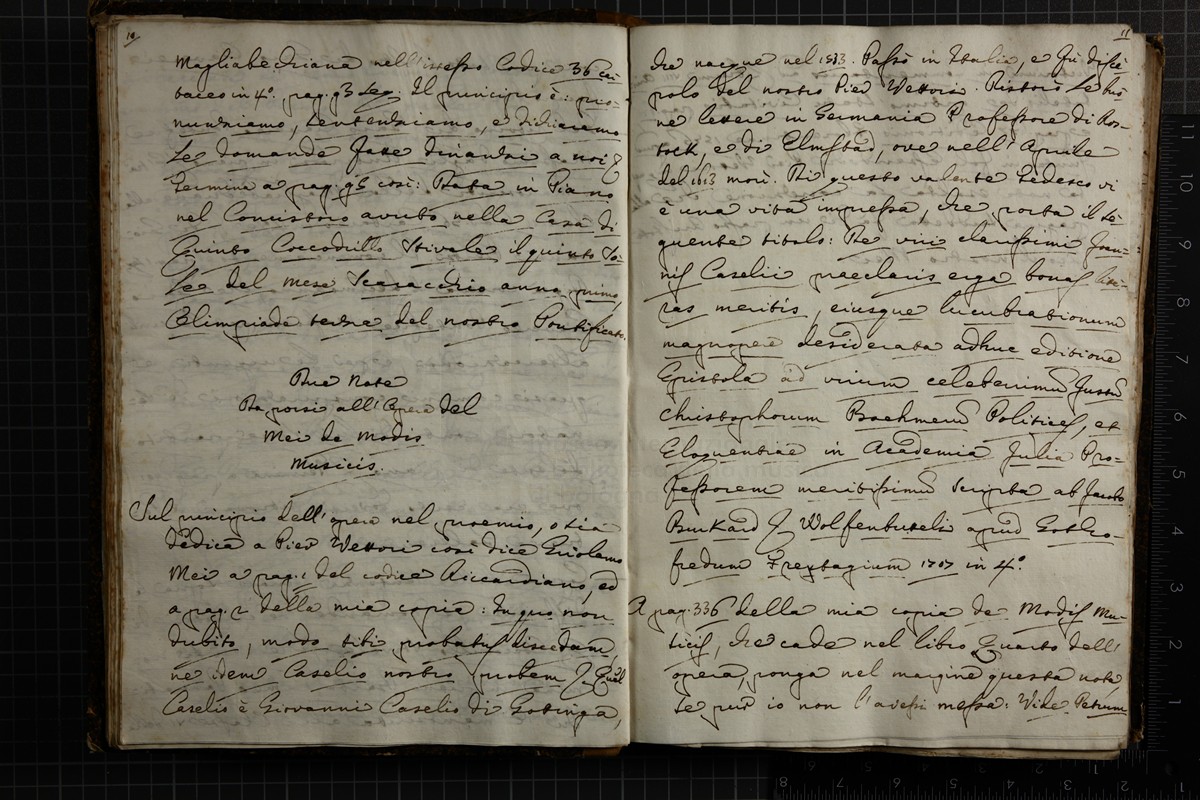 10
Magliabechiana nell'istesso Codice 36 car-
taceo in 4.º pag. 93 seg. Il principio è: pro-
nunziamo, sentenziamo, e dichiaremo
le domande fatte dinanzi a noi &
termina a pag. 96 così: Data in Piano
nel Concistoro avuto nella Casa di
Quinto Coccodrillo Stivale il quinto So-
le del mese Scaracchio anno primo,
Olimpiade terza del nostro Pontificato.
Due Note
Da porsi all'Opera del
Mei de Modis
Musicis.
Sul principio dell'opera nel proemio, o sia
dedica a Pier Vettori così dice Girolamo
Mei a pag. 1 del codice Riccardiano, ed
a pag. 2 della mia copia: In quo non
dubito, modo tibi probatus discedam,
ne idem Caselio nostro probem & Qual
Caselio è Giovanni Caselio di Gottinga,
11
che nacque nel 1533. Passò in Italia, e fù disce-
polo del nostro Pier Vettori. Ristorò le buo-
ne lettere in Germania Professore di Ros-
tock, e di Elmstad, ove nell'Aprile
del 1613 morì. Di questo valente Tedesco vi
è una vita impressa, che porta il se-
guente titolo: De viri clarissimi Joan-
nis Caselii praeclaris erga bonas lite-
ras meritis, eiusque lucubrationum
magnopere desiderata adhuc editione
Epistola ad virum celeberrimum Justum
Christophorum Boehmerum Politices, et
Eloquentiae in Academia Julia Pro-
fessorem meritissimum scripta ab Jacobo
Burkard & Wolfenbutteli apud Gotho-
fredum Freytagium 1707 in 4.º
A pag. 336 della mia copia de Modis Mu-
sicis, che cade nel libro Quarto dell'
opera, ponga nel margine questa nota
se pur io non l'avessi messa: Vide Petrum